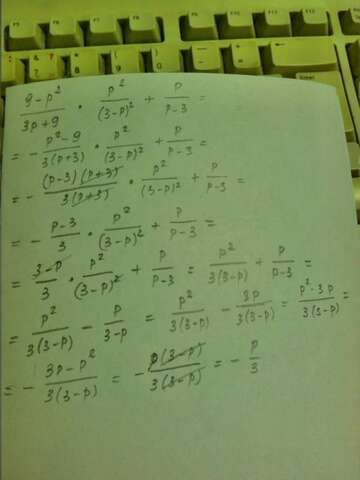 (9-p²)/(3p+9) · p²/(3-p)² + p/(p-3) =
= - (p²-9)/(3(p+3)) · p²/(3-p)² + p/(p-3) =
= - ((p-3)(p+3))/(3(p+3)) · p²/(3-p)² + p/(p-3) =
= - (p-3)/3 · p²/(3-p)² + p/(p-3) =
= (3-p)/3 · p²/(3-p)² + p/(p-3) = p²/(3(3-p)) + p/(p-3) =
= p²/(3(3-p)) - p/(3-p) = p²/(3(3-p)) - 3p/(3(3-p)) = (p²-3p)/(3(3-p)) =
= - (3p-p²)/(3(3-p)) = - (p(3-p))/(3(3-p)) = - p/3